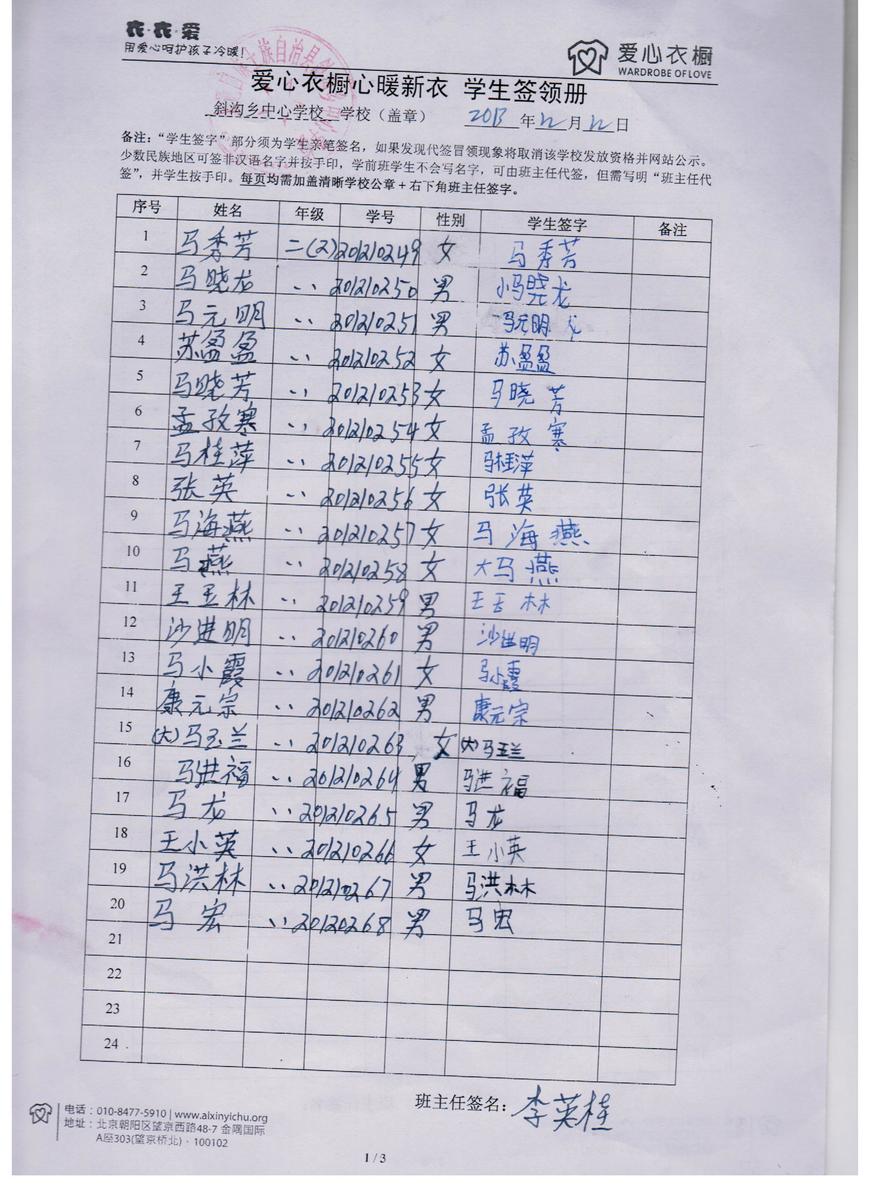 衣·衣·爱
用爱心呵护孩子冷暖！
爱心衣橱
WARDROBE OF LOVE
族自治县
爱心衣橱心暖新衣 学生签领册
斜沟乡中心学校 学校（盖章） 2013 年12月12日
备注：“学生签字”部分须为学生亲笔签名，如果发现代签冒领现象将取消该学校发放资格并网站公示。
少数民族地区可签非汉语名字并按手印，学前班学生不会写名字，可由班主任代签，但需写明“班主任代
签”，并学生按手印。每页均需加盖清晰学校公章+右下角班主任签字。
序号 姓名 年级 学号 性别 学生签字 备注
1 马秀芳 二(2) 201210249 女 马秀芳
2 马晓龙 ,, 201210250 男 小马晓龙
3 马元明 ,, 201210251 男 马元明
4 苏盈盈 ,, 201210252 女 苏盈盈
5 马晓芳 ,, 201210253 女 马晓芳
6 孟孜寒 ,, 201210254 女 孟孜寒
7 马桂萍 ,, 201210255 女 马桂萍
8 张英 ,, 201210256 女 张英
9 马海燕 ,, 201210257 女 马海燕
10 马燕 ,, 201210258 女 大马燕
11 王玉林 ,, 201210259 男 王玉林
12 沙进明 ,, 201210260 男 沙进明
13 马小霞 ,, 201210261 女 马小霞
14 康元宗 ,, 201210262 男 康元宗
15 (大)马玉兰 ,, 201210263 女 (大)马玉兰
16 马进福 ,, 201210264 男 马进福
17 马龙 ,, 201210265 男 马龙
18 王小英 ,, 201210266 女 王小英
19 马洪林 ,, 201210267 男 马洪林
20 马宏 ,, 20120268 男 马宏
21
22
23
24
班主任签名：李英桂
电话：010-8477-5910 | www.aixinyichu.org
地址：北京朝阳区望京西路48-7 金隅国际
A座303(望京桥北)·100102
1 / 3